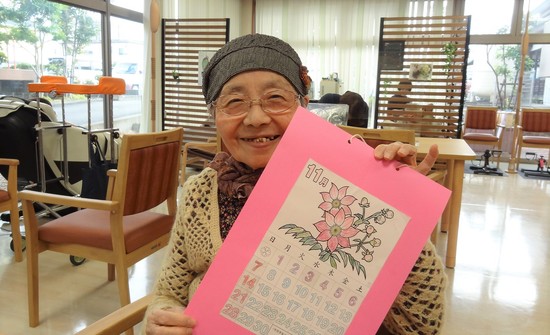 11月
日 月 火 水 木 金 土
1 2 3 4 5 6
7 8 9 10 11 12 13
14 15 16 17 18 19 20
21 22 23 24 25 26 27
28 29 30